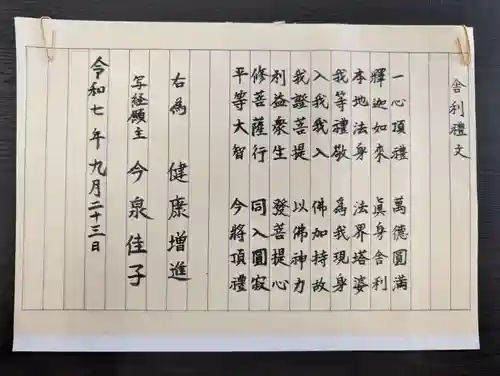 舎利禮文
一心頂禮　萬德圓滿
釋迦如來　眞身舎利
本地法身　法界塔婆
我等禮敬　為我現身
入我我入　佛加持故
我證菩提　以佛神力
利益衆生　發菩提心
修菩薩行　同入圓寂
平等大智　今将頂禮
右為　健康増進
写経願主　今泉佳子
令和七年九月二十三日